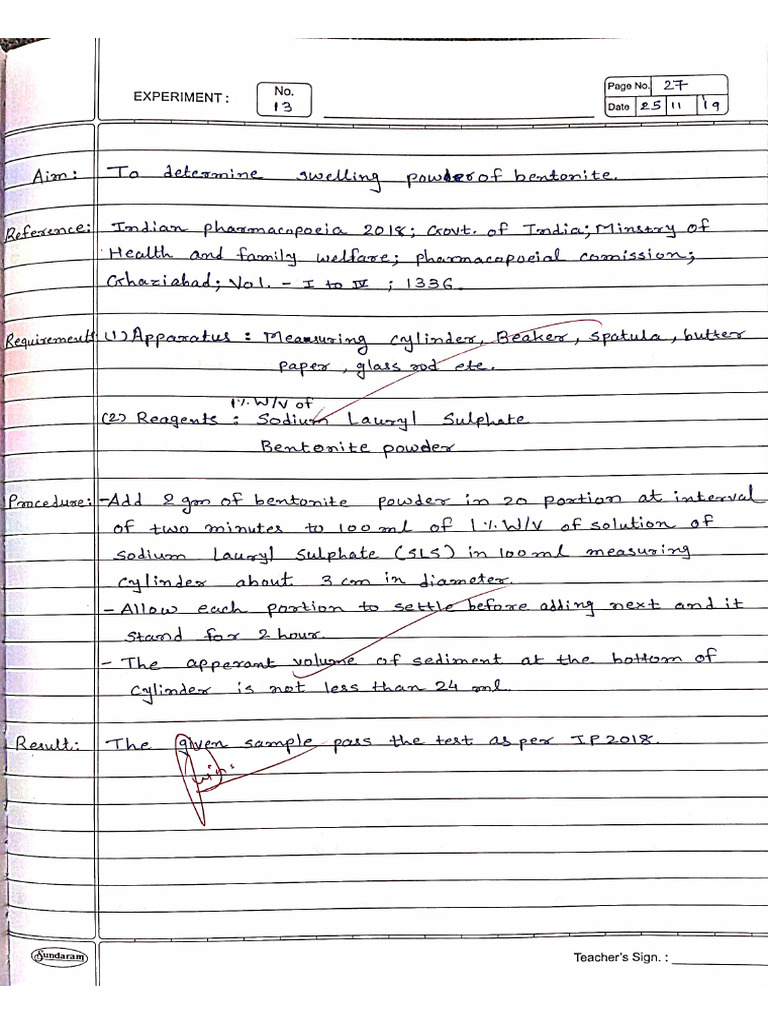 EXPERIMENT :
No.
13
Page No. 27
Date 25 11 19
Aim: To determine swelling powder of bentonite.
Reference: Indian pharmacopoeia 2018; Govt. of India; Minstry of
Health and family welfare; pharmacopoeial comission;
Ghaziabad; Vol. - I to IV ; 1336.
Requirement: (1) Apparatus : Measuring cylinder, Beaker, spatula, butter
paper, glass rod etc.
1% W/V of
(2) Reagents : Sodium Lauryl Sulphate
Bentonite powder
Procedure: - Add 2 gm of bentonite powder in 20 portion at interval
of two minutes to 100 ml of 1% W/V of solution of
sodium Lauryl Sulphate (SLS) in 100 ml measuring
cylinder about 3 cm in diameter.
- Allow each portion to settle before adding next and it
stand for 2 hour.
- The apperant volume of sediment at the bottom of
cylinder is not less than 24 ml.
Result: The given sample pass the test as per IP 2018.
Sundaram
Teacher's Sign. :